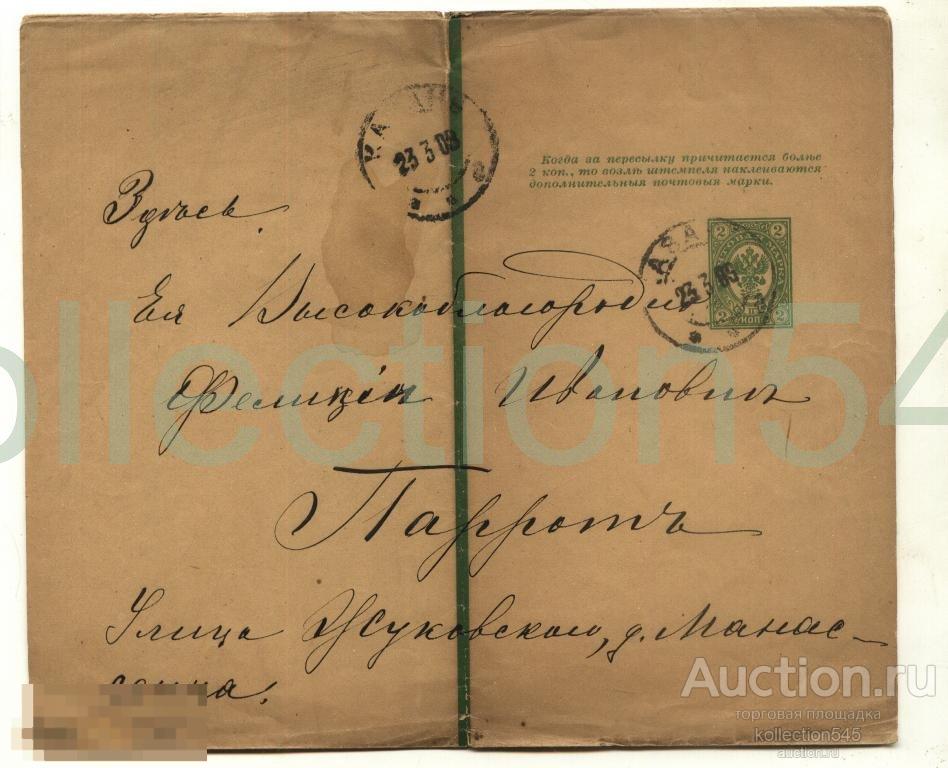 КАЗАНЬ
23 3 09
Когда за пересылку причитается болѣе
2 коп., то возлѣ штемпеля наклеиваются
дополнительныя почтовыя марки.
Здѣсь.
2 2
23 3 09
2 КОП. 2
Ея Высокоблагородію
Фелиціи Ивановнѣ
Парротъ
Улица Жуковского, д. Манас-
геина.
ollection54
Auction.ru
торговая площадка
kollection545
auction.ru